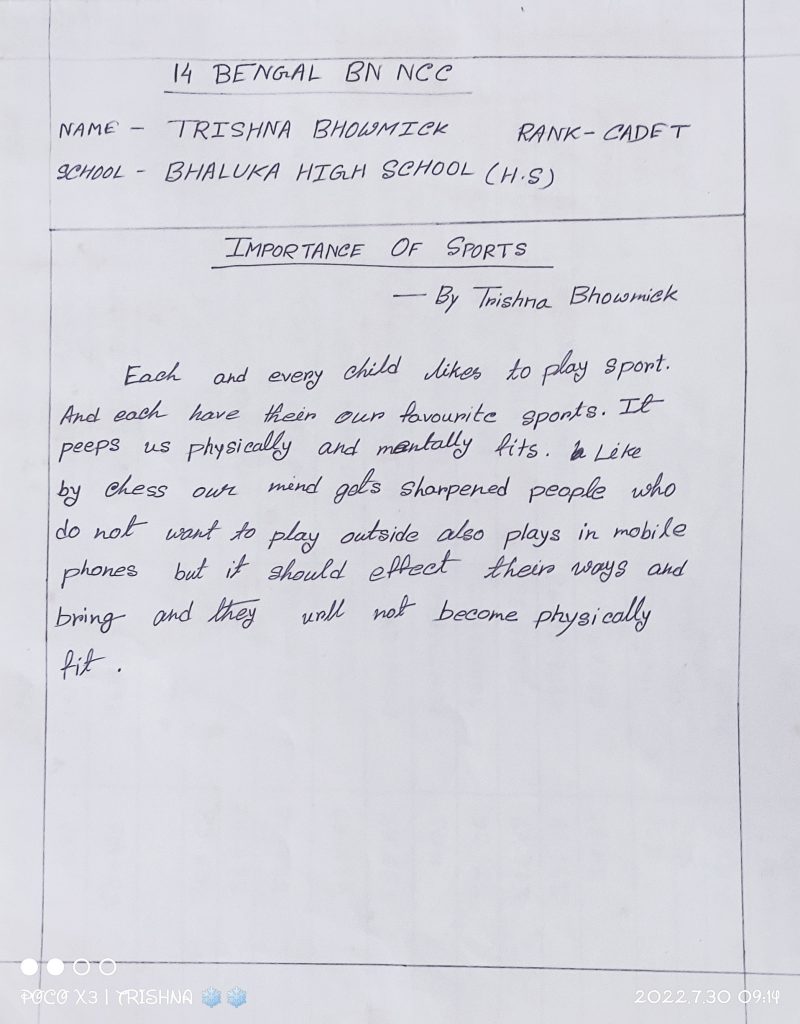 14 BENGAL BN NCC
NAME - TRISHNA BHOWMICK RANK-CADET
SCHOOL - BHALUKA HIGH SCHOOL (H.S)
IMPORTANCE OF SPORTS
— By Trishna Bhowmick
Each and every child likes to play sport.
And each have their our favourite sports. It
peeps us physically and mentally fits. Like
by chess our mind gets sharpened people who
do not want to play outside also plays in mobile
phones but it should effect their ways and
bring and they will not become physically
fit.
POCO X3 | TRISHNA ❄️❄️
2022.7.30 09:14